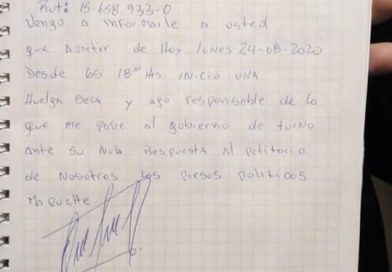 Rut: 15.658.933-0
Vengo a informarle a usted
que apartir de Hoy lunes 24-08-2020
Desde las 18 Hrs. inicio una
Huelga Seca y ago responsible de lo
que me pase al gobierno de turno
Ante su nula Respuesta Al petitorio
de Nosotros los presos politicos
Mapuche